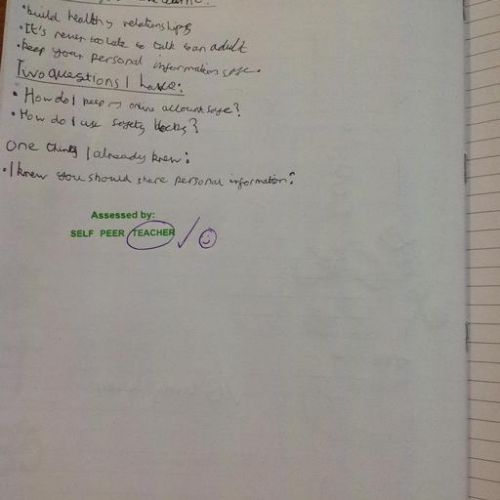 •build healthy relationships
•It's never too late to talk to an adult
•keep your personal information safe.
Two questions I have:
• How do I keep my online account safe?
• How do I use safety blocks?
One thing I already knew:
•I knew you should share personal information?
Assessed by:
SELF PEER TEACHER